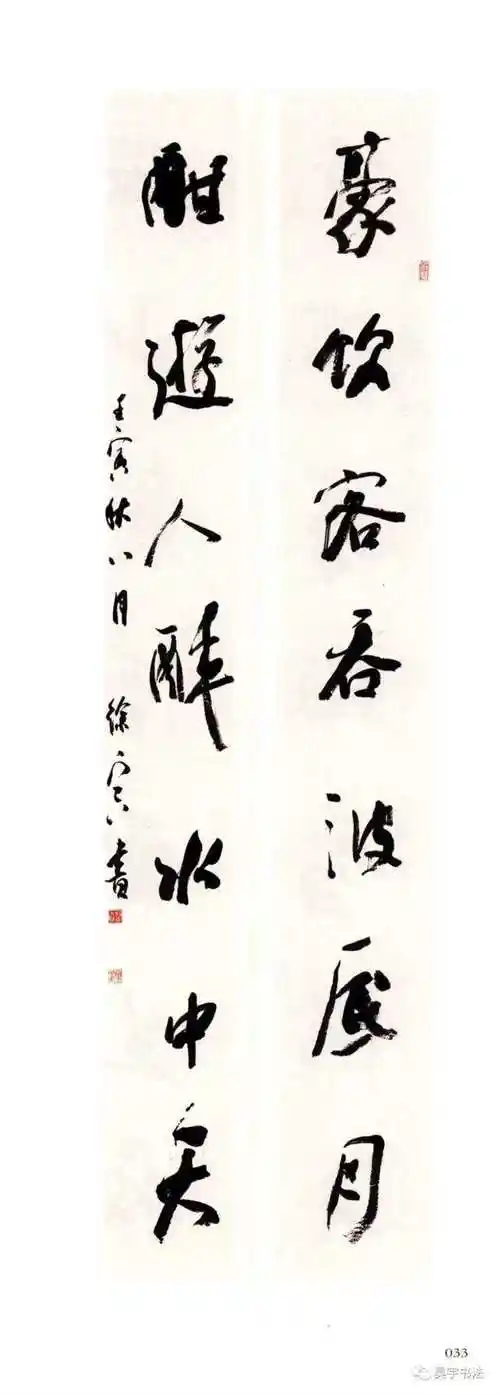 豪饮客吞波底月
酣遊人醉水中天
壬寅秋八月 徐書
033
昊宇书法